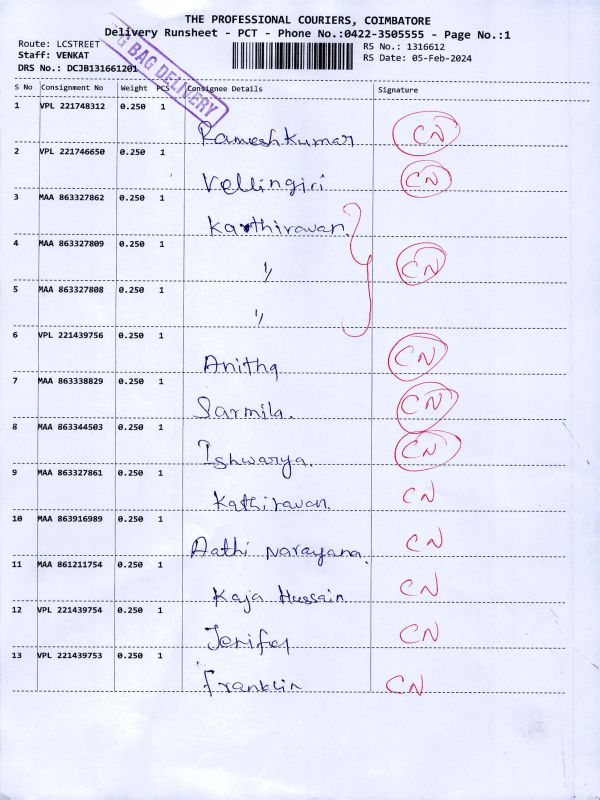 THE PROFESSIONAL COURIERS, COIMBATORE
Delivery Runsheet - PCT - Phone No.:0422-3505555 - Page No.:1
Route: LCSTREET
Staff: VENKAT
DRS No.: DCJB131661201
RS No.: 1316612
RS Date: 05-Feb-2024
BAG DELIVERY
S No Consignment No Weight PCS Consignee Details Signature
1 VPL 221748312 0.250 1
Rameshkumar CN
2 VPL 221746650 0.250 1
Vellingiri CN
3 MAA 863327862 0.250 1
Karthiravan.
4 MAA 863327809 0.250 1
〃 CN
5 MAA 863327808 0.250 1
〃
6 VPL 221439756 0.250 1
Anitha CN
7 MAA 863338829 0.250 1
Sarmila. CN
8 MAA 863344503 0.250 1
Ishwarya. CN
9 MAA 863327861 0.250 1
Kathiravan. CN
10 MAA 863916989 0.250 1
Aathi Narayana. CN
11 MAA 861211754 0.250 1
Kaja Hussain. CN
12 VPL 221439754 0.250 1
Jenifer CN
13 VPL 221439753 0.250 1
Franklin CN